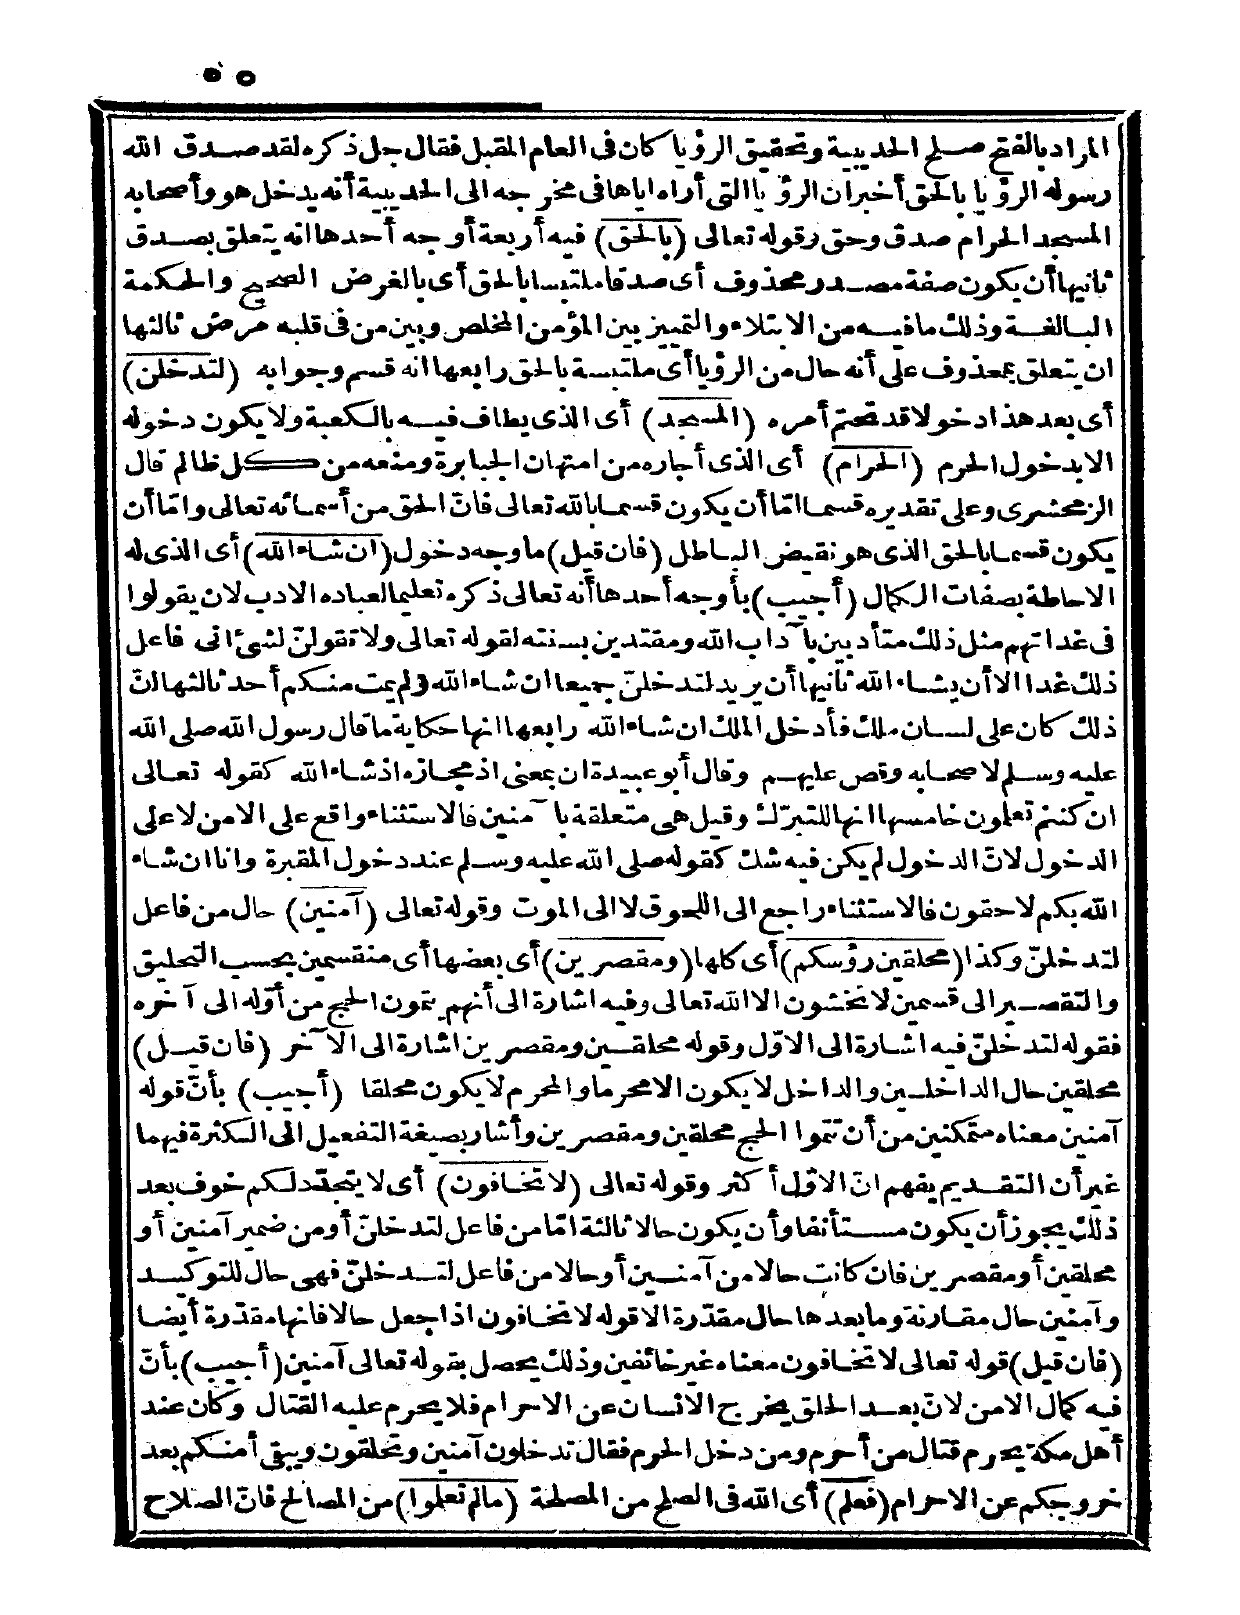 ٥٥
المراد بالفتح صلح الحديبية وتحقيق الرؤيا كان فى العام المقبل فقال جل ذكره لقد صدق الله
رسوله الرؤيا بالحق أخبر ان الرؤيا التى أراه اياها فى مخرجه الى الحديبية أنه يدخل هو وأصحابه
المسجد الحرام صدق وحق وقوله تعالى (بالحق) فيه أربعة أوجه أحدها انه يتعلق بصدق
ثانيها أن يكون صفة مصدر محذوف أى صدقا ملتبسا بالحق أى بالغرض الصحيح والحكمة
البالغة وذلك ما فيه من الابتلاء والتمييز بين المؤمن المخلص وبين من فى قلبه مرض ثالثها
ان يتعلق بمحذوف على أنه حال من الرؤيا أى ملتبسة بالحق رابعها انه قسم وجوابه (لتدخلن)
أى بعد هذا دخولا قد تحتم أمره (المسجد) أى الذى يطاف فيه بالكعبة ولا يكون دخوله
الا بدخول الحرم (الحرام) أى الذى أجاره من امتهان الجبابرة ومنعه من كل ظالم قال
الزمخشرى وعلى تقديره قسما امّا أن يكون قسما بالله تعالى فانّ الحق من أسمائه تعالى وامّا أن
يكون قسما بالحق الذى هو نقيض الباطل (فان قيل) ما وجه دخول (ان شاء الله) أى الذى له
الاحاطة بصفات الكمال (أجيب) بأوجه أحدها أنه تعالى ذكره تعليما لعباده الادب لان يقولوا
فى غداتهم مثل ذلك متأدبين بآداب الله ومقتدين بسنته لقوله تعالى ولا تقولنّ لشئ انى فاعل
ذلك غدا الا أن يشاء الله ثانيها أن يريد لتدخلنّ جميعا ان شاء الله ولم يمت منكم أحد ثالثها انّ
ذلك كان على لسان ملك فأدخل الملك ان شاء الله رابعها انها حكاية ما قال رسول الله صلى الله
عليه وسلم لاصحابه وقص عليهم وقال أبو عبيدة ان بمعنى اذ مجازه اذ شاء الله كقوله تعالى
ان كنتم تعلمون خامسها انها للتبرّك وقيل هى متعلقة بآمنين فالاستثناء واقع على الامن لا على
الدخول لانّ الدخول لم يكن فيه شك كقوله صلى الله عليه وسلم عند دخول المقبرة وانا ان شاء
الله بكم لاحقون فالاستثناء راجع الى اللحوق لا الى الموت وقوله تعالى (آمنين) حال من فاعل
لتدخلنّ وكذا (محلقين رؤسكم) أى كلها (ومقصرين) أى بعضها أى منقسمين بحسب التحليق
والتقصير الى قسمين لا تخشون الا الله تعالى وفيه اشارة الى أنهم يتمون الحج من أوّله الى آخره
فقوله لتدخلنّ فيه اشارة الى الاوّل وقوله محلقين ومقصرين اشارة الى الآخر (فان قيل)
محلقين حال الداخلين والداخل لا يكون الا محرما والمحرم لا يكون محلقا (أجيب) بأنّ قوله
آمنين معناه متمكنين من أن تتموا الحج محلقين ومقصرين وأشار بصيغة التفعيل الى الكثرة فيهما
غير أن التقديم يفهم انّ الاوّل أكثر وقوله تعالى (لا تخافون) أى لا يتجدّد لكم خوف بعد
ذلك يجوز أن يكون مستأنفا وأن يكون حالا ثالثة امّا من فاعل لتدخلنّ أو من ضمير آمنين أو
محلقين أو مقصرين فان كانت حالا من آمنين أو حالا من فاعل لتدخلنّ فهى حال للتوكيد
وآمنين حال مقارنة وما بعدها حال مقدّرة الا قوله لا تخافون اذا جعل حالا فانها مقدّرة أيضا
(فان قيل) قوله تعالى لا تخافون معناه غير خائفين وذلك يحصل بقوله تعالى آمنين (أجيب) بأنّ
فيه كمال الامن لانّ بعد الحلق يخرج الانسان عن الاحرام فلا يحرم عليه القتال وكان عند
أهل مكة يحرم قتال من أحرم ومن دخل الحرم فقال تدخلون آمنين وتحلقون ويبقى أمنكم بعد
خروجكم عن الاحرام (فعلم) أى الله فى الصلح من المصلحة (ما لم تعلموا) من المصالح فانّ الصلاح